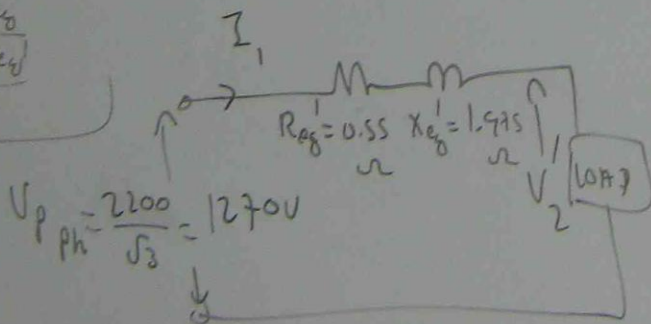 I₁
R'eq = 0.55 Ω
X'eq = 1.975 Ω
V'₂
LOAD
Vp ph = 2200/√3 = 1270V